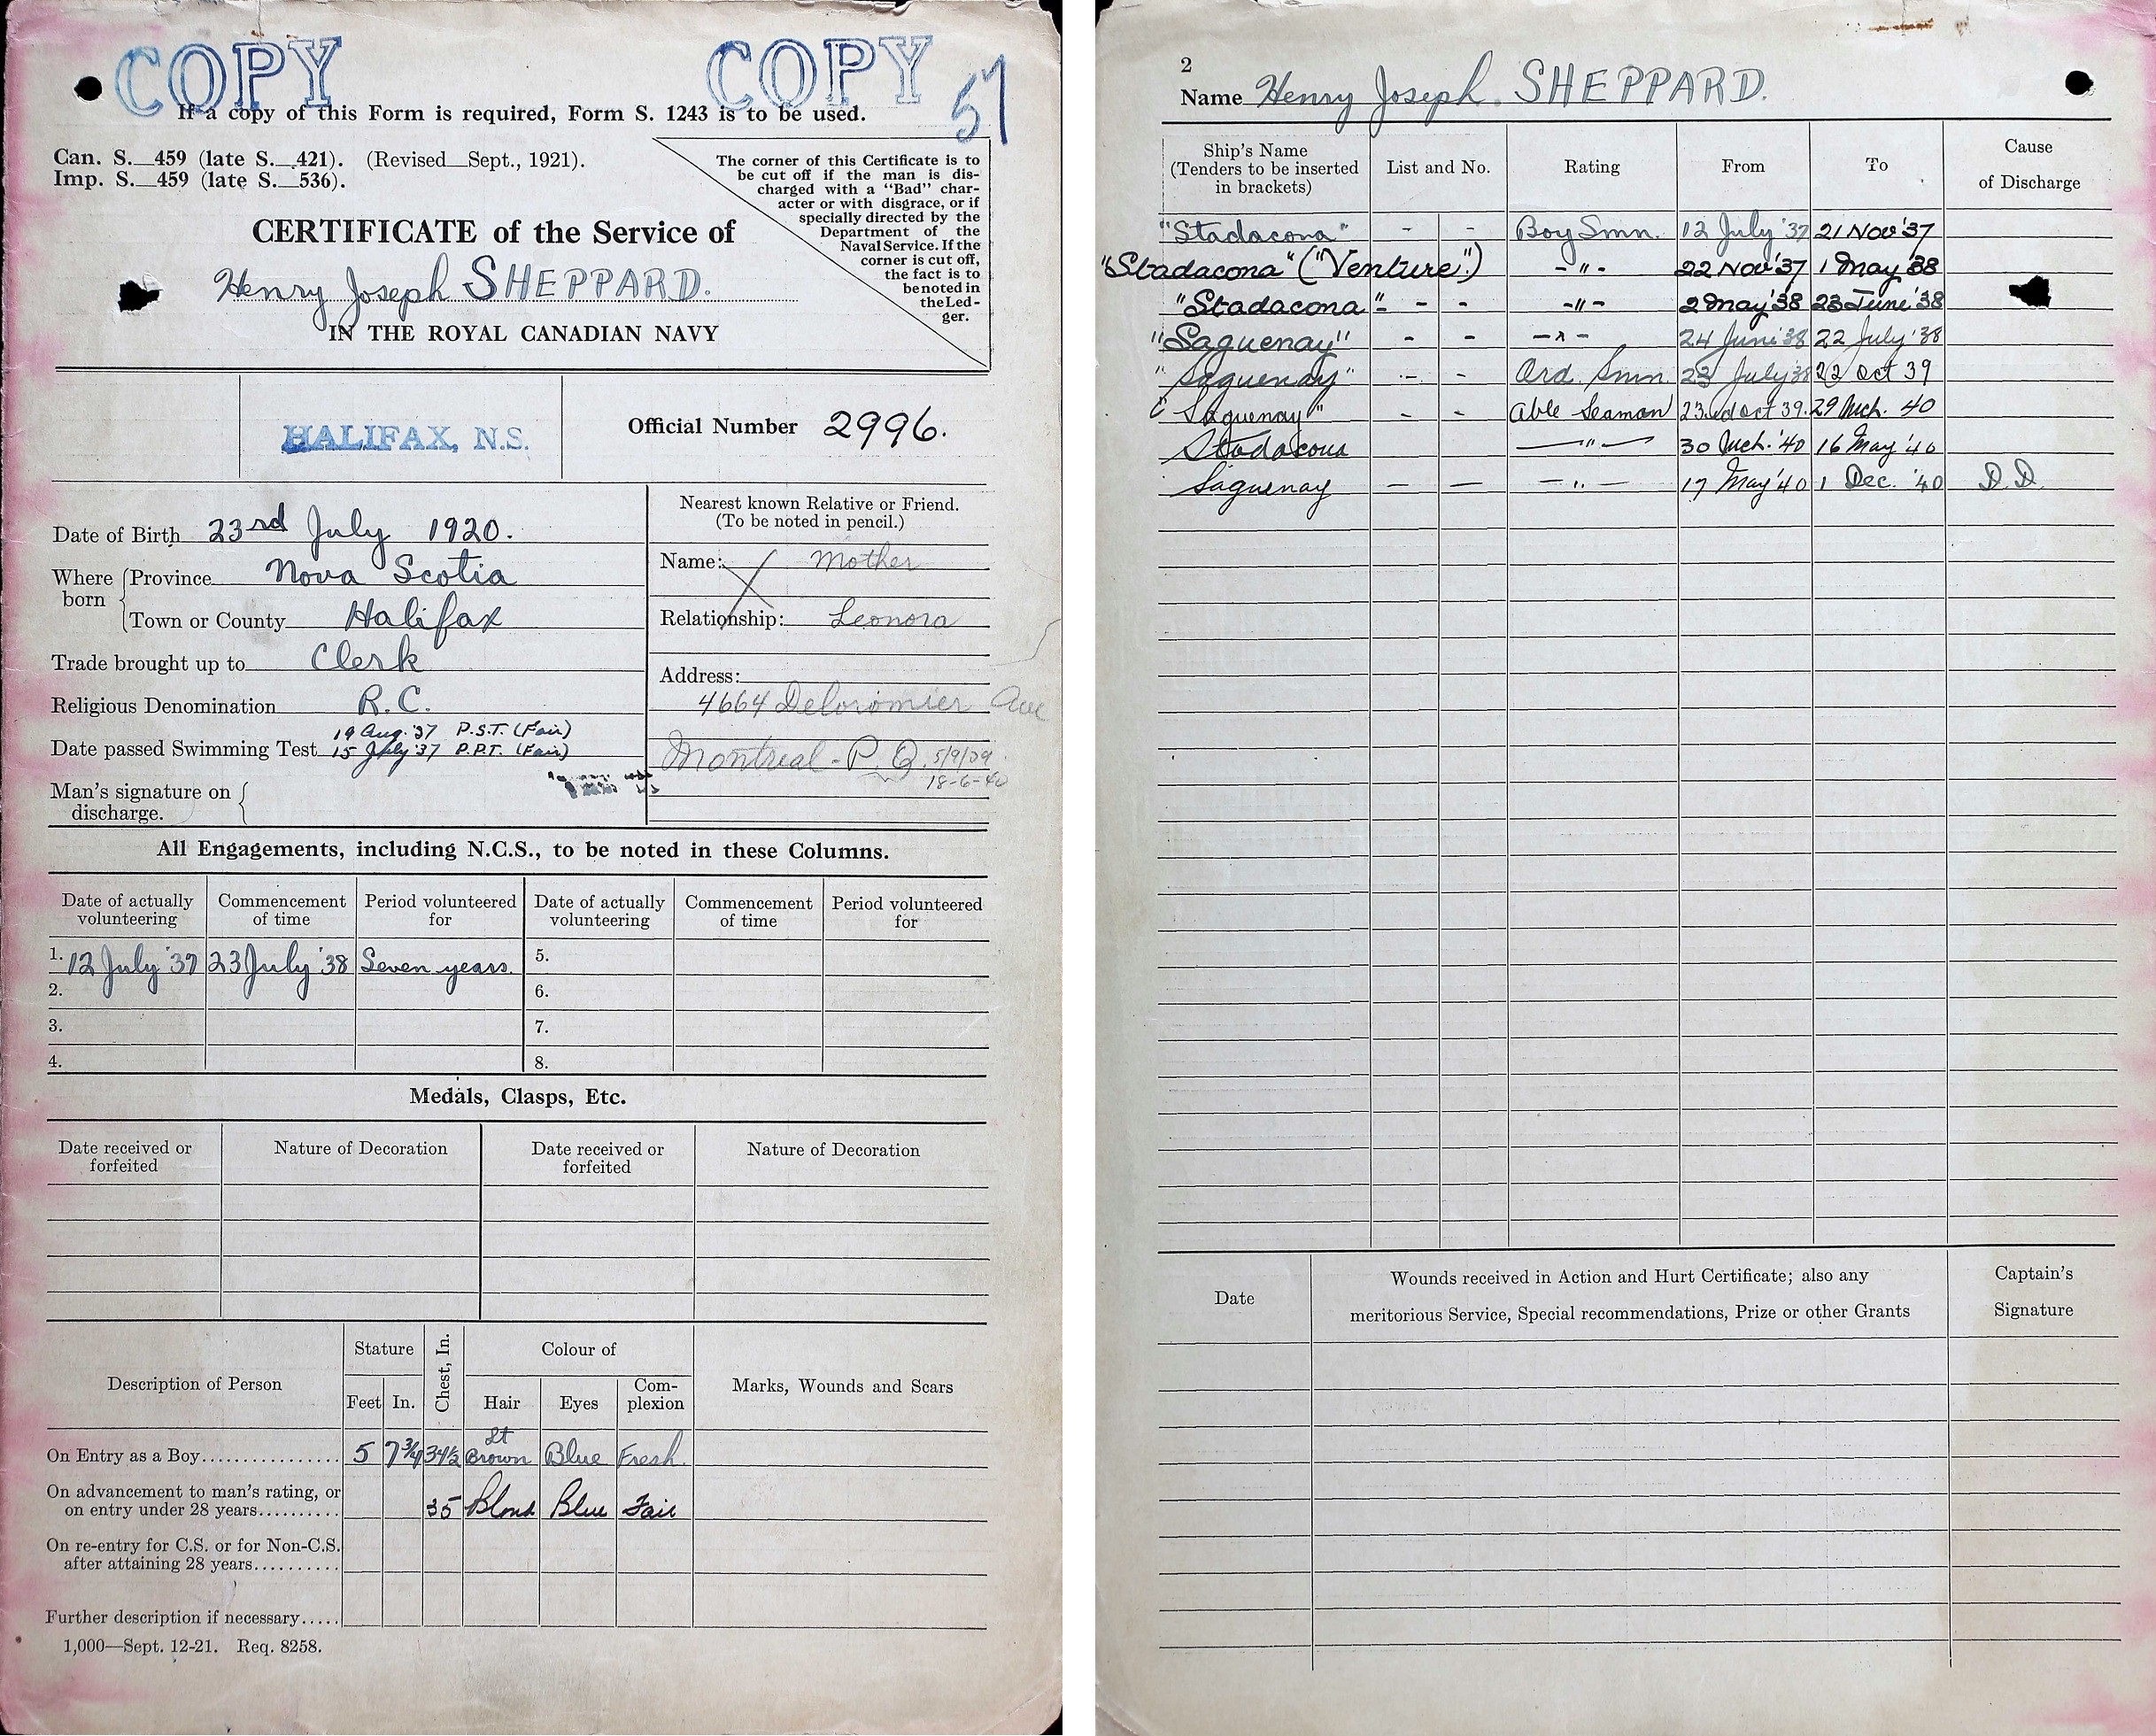 COPY COPY 57
If a copy of this Form is required, Form S. 1243 is to be used.
Can. S. 459 (late S. 421). (Revised Sept., 1921).
Imp. S. 459 (late S. 536).
The corner of this Certificate is to
be cut off if the man is dis-
charged with a "Bad" char-
acter or with disgrace, or if
specially directed by the
Department of the
Naval Service. If the
corner is cut off,
the fact is to
be noted in
the Led-
ger.
CERTIFICATE of the Service of
Henry Joseph SHEPPARD.
IN THE ROYAL CANADIAN NAVY
HALIFAX, N.S.
Official Number 2996.
Date of Birth 23rd July 1920.
Where born Province Nova Scotia
Town or County Halifax
Trade brought up to Clerk
Religious Denomination R.C.
19 Aug. '37 P.S.T. (Fair)
Date passed Swimming Test 15 July '37 P.P.T. (Fair)
Man's signature on
discharge.
Nearest known Relative or Friend.
(To be noted in pencil.)
Name: Mother
Relationship: Leonora
Address:
4664 Deloromier Ave
Montreal - P.Q. 5/9/39
18-6-40
All Engagements, including N.C.S., to be noted in these Columns.
Date of actually volunteering Commencement of time Period volunteered for Date of actually volunteering Commencement of time Period volunteered for
1. 12 July '37 23 July '38 Seven years. 5.
2. 6.
3. 7.
4. 8.
Medals, Clasps, Etc.
Date received or forfeited Nature of Decoration Date received or forfeited Nature of Decoration
Description of Person Stature Chest, In. Colour of Marks, Wounds and Scars
Feet In. Hair Eyes Com-plexion
On Entry as a Boy 5 7¾ 34½ Lt Brown Blue Fresh
On advancement to man's rating, or
on entry under 28 years 35 Blond Blue Fair
On re-entry for C.S. or for Non-C.S.
after attaining 28 years
Further description if necessary
1,000—Sept. 12-21. Req. 8258.
2
Name Henry Joseph. SHEPPARD.
Ship's Name (Tenders to be inserted in brackets) List and No. Rating From To Cause of Discharge
"Stadacona" - - Boy Smn. 12 July '37 21 Nov '37
"Stadacona" ("Venture") -"- 22 Nov '37 1 May '38
"Stadacona" - - -"- 2 May '38 23 June '38
"Saguenay" - - -"- 24 June '38 22 July '38
"Saguenay" - - Ord. Smn. 23 July '38 22 Oct 39
"Saguenay" - - Able Seaman 23rd Oct 39. 29 Mch. 40
Stadacona —"— 30 Mch. '40 16 May '40
Saguenay — — —"— 17 May '40 1 Dec. '40 D.D.
Date Wounds received in Action and Hurt Certificate; also any Captain's
meritorious Service, Special recommendations, Prize or other Grants Signature